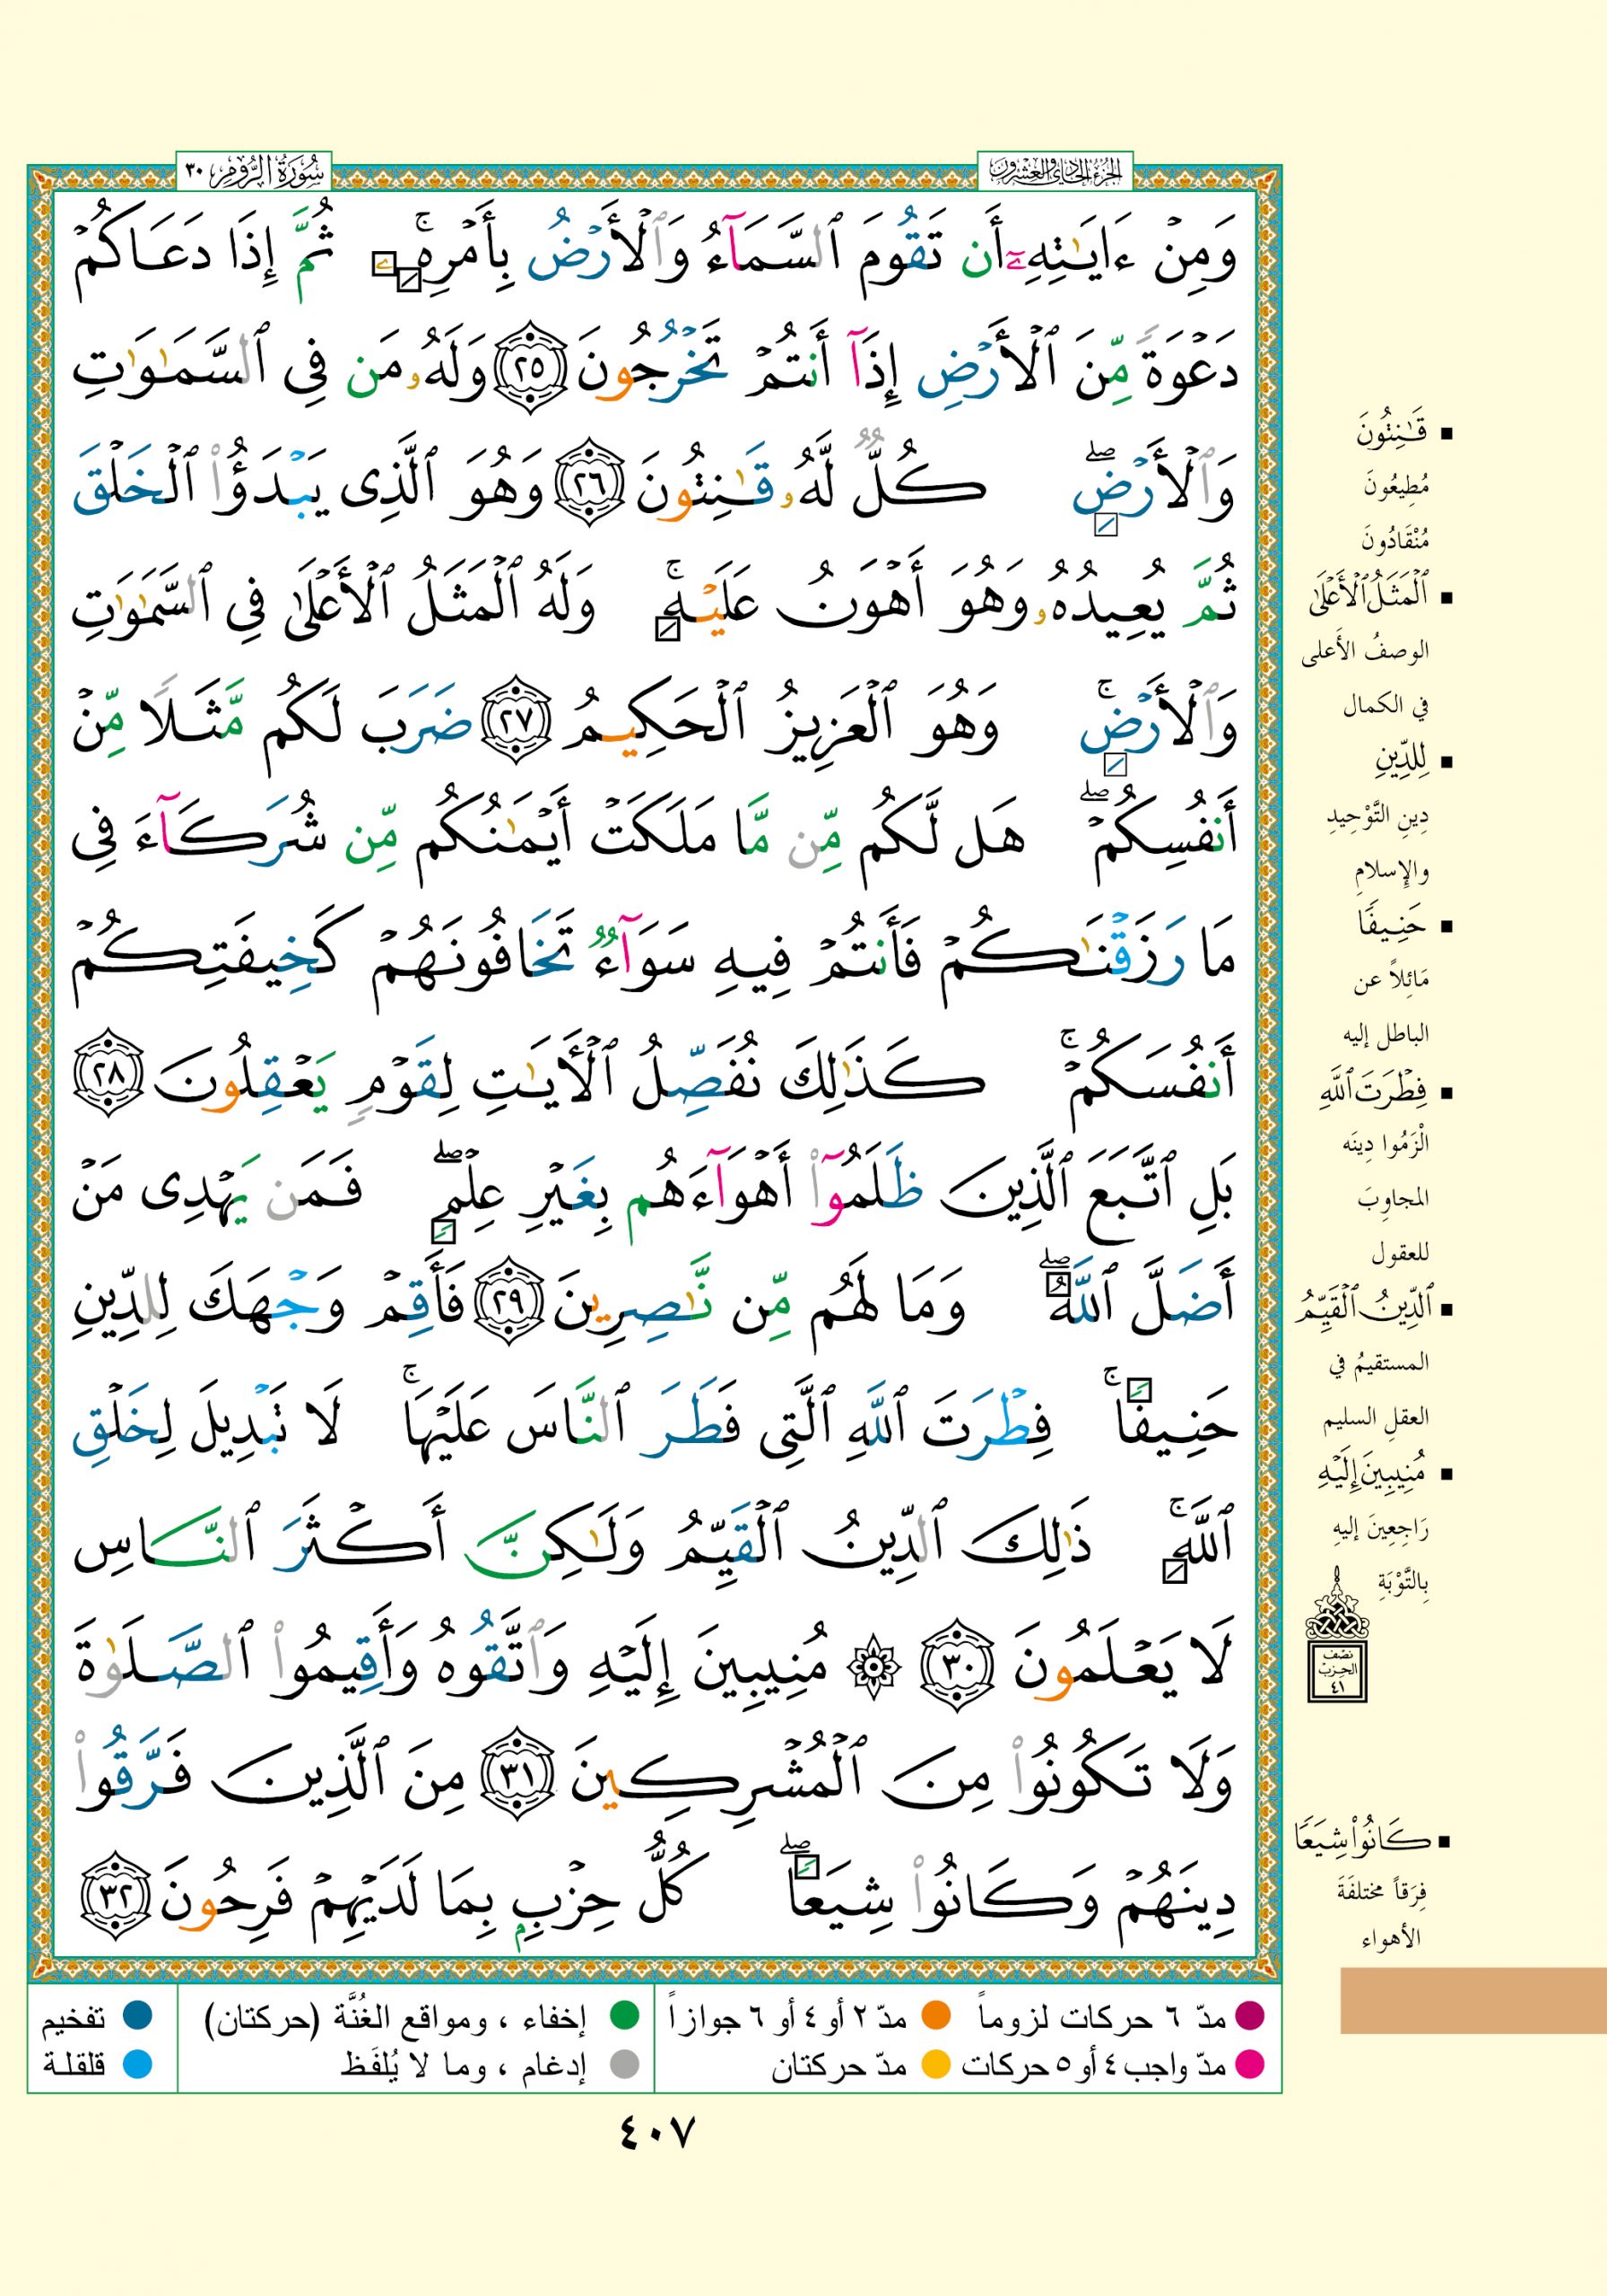 الجزء الحادي والعشرون
سُورَةُ الرُّومِ ٣٠
وَمِنْ ءَايَـٰتِهِۦٓ أَن تَقُومَ ٱلسَّمَآءُ وَٱلْأَرْضُ بِأَمْرِهِۦ ۚ ثُمَّ إِذَا دَعَاكُمْ
دَعْوَةً مِّنَ ٱلْأَرْضِ إِذَآ أَنتُمْ تَخْرُجُونَ ٢٥ وَلَهُۥ مَن فِى ٱلسَّمَـٰوَٰتِ
وَٱلْأَرْضِ ۖ كُلٌّ لَّهُۥ قَـٰنِتُونَ ٢٦ وَهُوَ ٱلَّذِى يَبْدَؤُا۟ ٱلْخَلْقَ
ثُمَّ يُعِيدُهُۥ وَهُوَ أَهْوَنُ عَلَيْهِ ۚ وَلَهُ ٱلْمَثَلُ ٱلْأَعْلَىٰ فِى ٱلسَّمَـٰوَٰتِ
وَٱلْأَرْضِ ۚ وَهُوَ ٱلْعَزِيزُ ٱلْحَكِيمُ ٢٧ ضَرَبَ لَكُم مَّثَلًا مِّنْ
أَنفُسِكُمْ ۖ هَل لَّكُم مِّن مَّا مَلَكَتْ أَيْمَـٰنُكُم مِّن شُرَكَآءَ فِى
مَا رَزَقْنَـٰكُمْ فَأَنتُمْ فِيهِ سَوَآءٌ تَخَافُونَهُمْ كَخِيفَتِكُمْ
أَنفُسَكُمْ ۚ كَذَٰلِكَ نُفَصِّلُ ٱلْـَٔايَـٰتِ لِقَوْمٍ يَعْقِلُونَ ٢٨
بَلِ ٱتَّبَعَ ٱلَّذِينَ ظَلَمُوٓا۟ أَهْوَآءَهُم بِغَيْرِ عِلْمٍ ۖ فَمَن يَهْدِى مَنْ
أَضَلَّ ٱللَّهُ ۖ وَمَا لَهُم مِّن نَّـٰصِرِينَ ٢٩ فَأَقِمْ وَجْهَكَ لِلدِّينِ
حَنِيفًا ۚ فِطْرَتَ ٱللَّهِ ٱلَّتِى فَطَرَ ٱلنَّاسَ عَلَيْهَا ۚ لَا تَبْدِيلَ لِخَلْقِ
ٱللَّهِ ۚ ذَٰلِكَ ٱلدِّينُ ٱلْقَيِّمُ وَلَـٰكِنَّ أَكْثَرَ ٱلنَّاسِ
لَا يَعْلَمُونَ ٣٠ ۞ مُنِيبِينَ إِلَيْهِ وَٱتَّقُوهُ وَأَقِيمُوا۟ ٱلصَّلَوٰةَ
وَلَا تَكُونُوا۟ مِنَ ٱلْمُشْرِكِينَ ٣١ مِنَ ٱلَّذِينَ فَرَّقُوا۟
دِينَهُمْ وَكَانُوا۟ شِيَعًا ۖ كُلُّ حِزْبٍۭ بِمَا لَدَيْهِمْ فَرِحُونَ ٣٢
قَـٰنِتُونَ
مُطِيعُونَ
مُنْقَادُونَ
ٱلْمَثَلُ ٱلْأَعْلَىٰ
الوصفُ الأَعلى
في الكمال
لِلدِّينِ
دِينِ التَّوْحِيدِ
والإِسلامِ
حَنِيفًا
مَائِلاً عن
الباطل إليه
فِطْرَتَ ٱللَّهِ
الْزَمُوا دِينَه
المجاوِبَ
للعقول
ٱلدِّينُ ٱلْقَيِّمُ
المستقيمُ في
العقلِ السليم
مُنِيبِينَ إِلَيْهِ
رَاجِعِينَ إليهِ
بِالتَّوْبَةِ
نصف
الحزب
٤١
كَانُوا۟ شِيَعًا
فِرَقاً مختلفَةَ
الأهواء
مدّ ٦ حركات لزوماً
مدّ ٢ أو ٤ أو ٦ جوازاً
إخفاء ، ومواقع الغُنَّة (حركتان)
تفخيم
مدّ واجب ٤ أو ٥ حركات
مدّ حركتان
إدغام ، وما لا يُلفَظ
قلقلة
٤٠٧